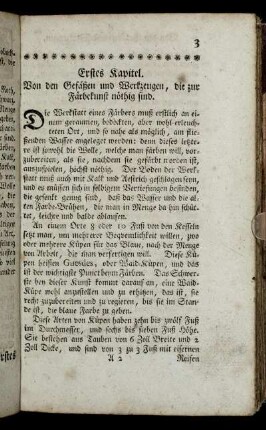 3
Erstes Kapitel.
Von den Gefäßen und Werkzeugen, die zur
Färbekunst nöthig sind.
Die Werkstatt eines Färbers muß erstlich an ei
nem geraumen, bedeckten, aber wohl erleuch
teten Ort, und so nahe als möglich, am flie
ßenden Wasser angeleget werden: denn dieses letzte
re ist sowohl die Wolle, welche man färben will, vor
zubereiten, als sie, nachdem sie gefärbt worden ist,
auszuspielen, höchst nöthig. Der Boden der Werk
statt muß auch mit Kalk und Aestrich geschlagen seyn,
und es müssen sich in selbigen Vertiefungen befinden,
die gesenkt genug sind, daß das Wasser und die al
ten Farbe-Brühen, die man in Menge da hin schüt
tet, leichte und balde ablaufen.
An einem Orte 8 oder 10 Fuß von den Kesseln
setzt man, um mehrerer Bequemlichkeit willen, zwo
oder mehrere Küpen für das Blaue, nach der Menge
von Arbeit, die man verfertigen will. Diese Kü
pen heißen Guesdes, oder Waid-Küpen, und das
ist der wichtigste Punct beym Färben. Das Schwer
ste bey dieser Kunst kommt darauf an, eine Waid-
Küpe wohl anzustellen und zu erhitzen, das ist, sie
recht zuzubereiten und zu regieren, bis sie im Stan
de ist, die blaue Farbe zu geben.
Diese Arten von Küpen haben zehn bis zwölf Fuß
im Durchmesser, und sechs bis sieben Fuß Höhe.
Sie bestehen aus Tauben von 6 Zoll Breite und 2
Zoll Dicke, und sind von 3 zu 3 Fuß mit eisernen
A 2 Reifen